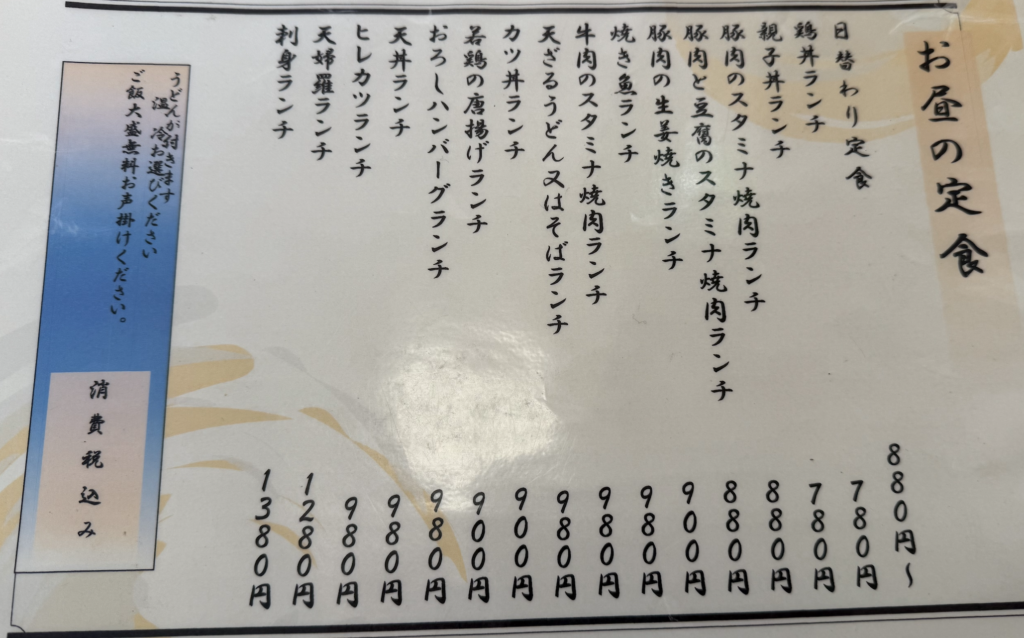 お昼の定食
日替わり定食 880円~
鶏丼ランチ 780円
親子丼ランチ 780円
豚肉のスタミナ焼肉ランチ 880円
豚肉と豆腐のスタミナ焼肉ランチ 880円
豚肉の生姜焼きランチ 900円
焼き魚ランチ 980円
牛肉のスタミナ焼肉ランチ 980円
天ざるうどん又はそばランチ 980円
カツ丼ランチ 900円
若鶏の唐揚げランチ 900円
おろしハンバーグランチ 980円
天丼ランチ 980円
ヒレカツランチ 980円
天婦羅ランチ 1280円
刺身ランチ 1380円
うどんが付きます
温 冷お選びください
ご飯大盛無料お声掛けください。
消費税込み